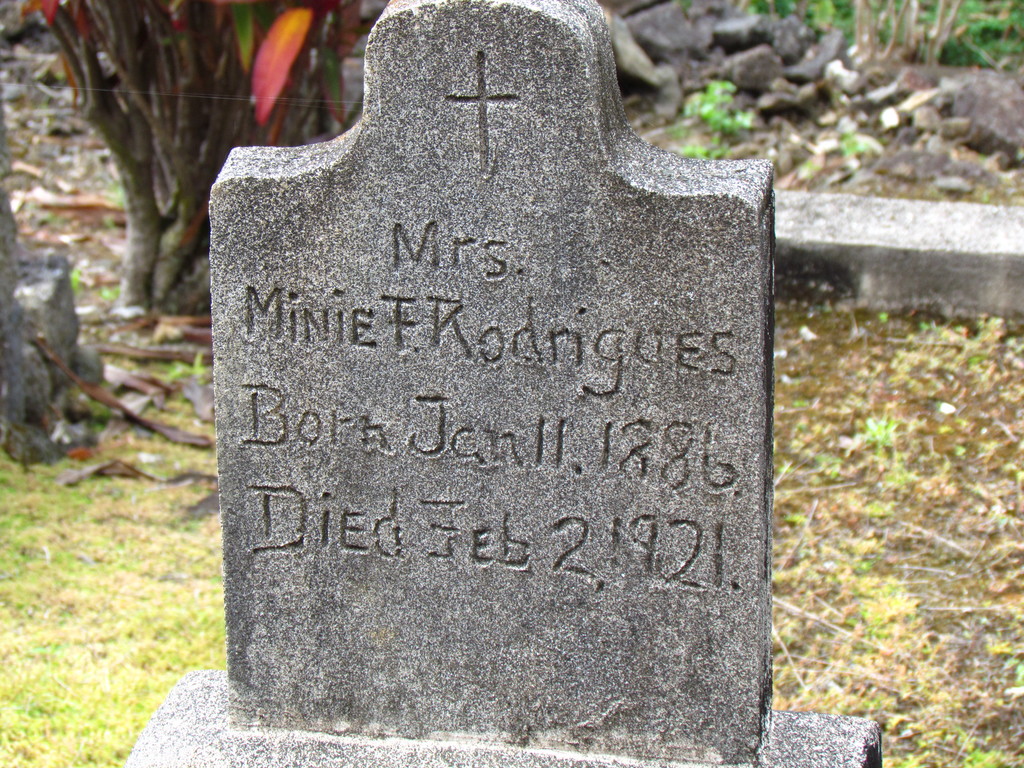 Mrs.
Minie F. Rodrigues
Born Jan 11. 1886.
Died Feb 2, 1921.